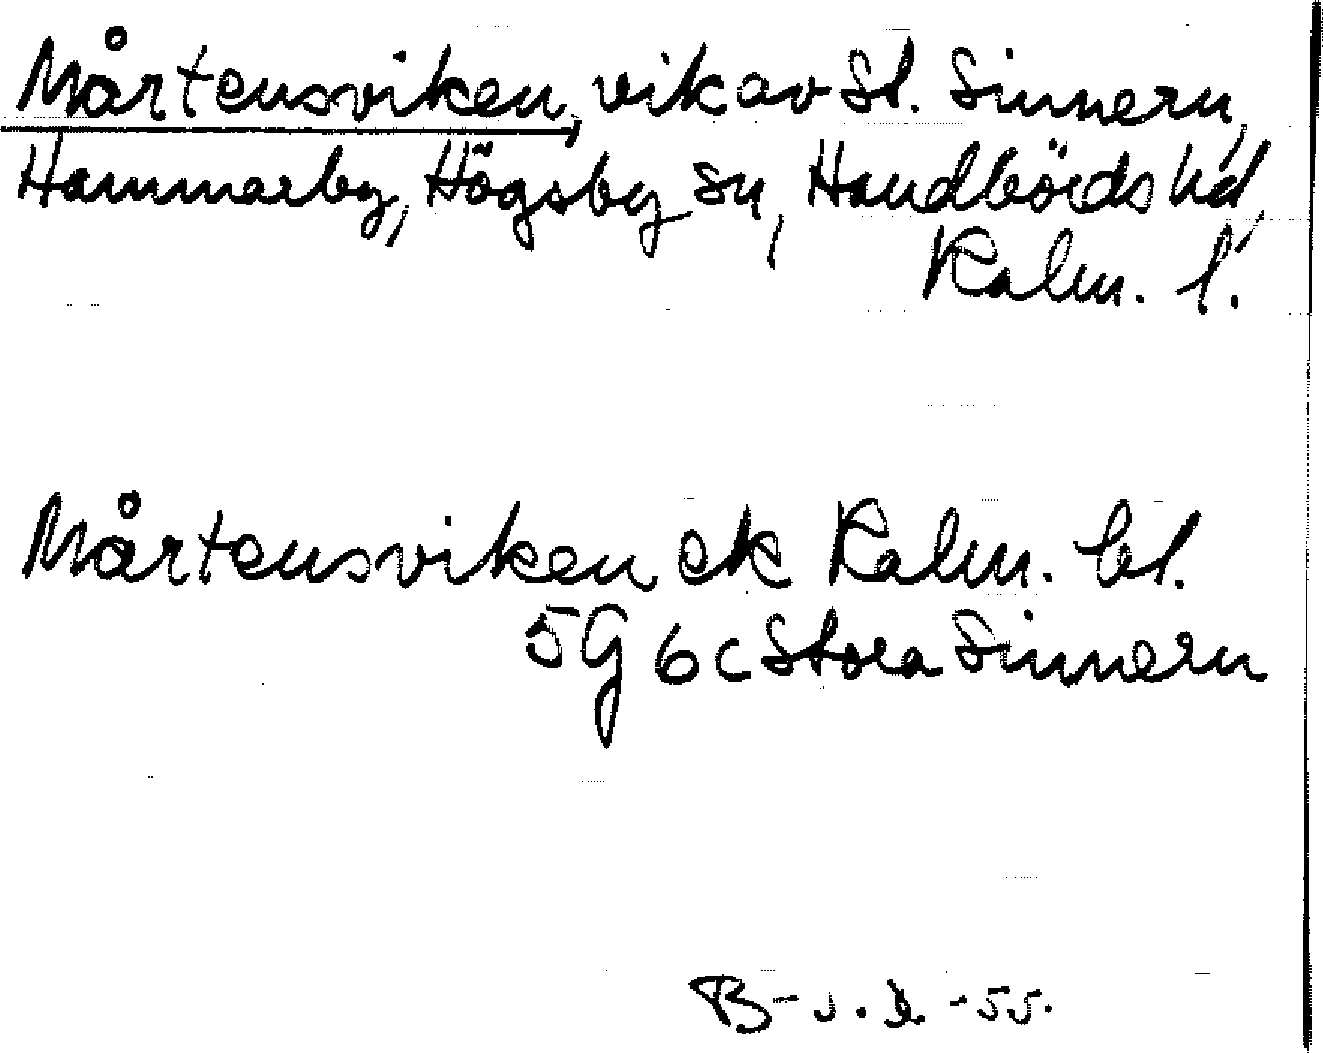 Mårtensviken, vik av St. Sinnern,
Hammarby, Högsby sn, Handbörds hd,
Kalm. l.
Mårtensviken ek Kalm. bl.
5G 6c Stora Sinnern
-55.